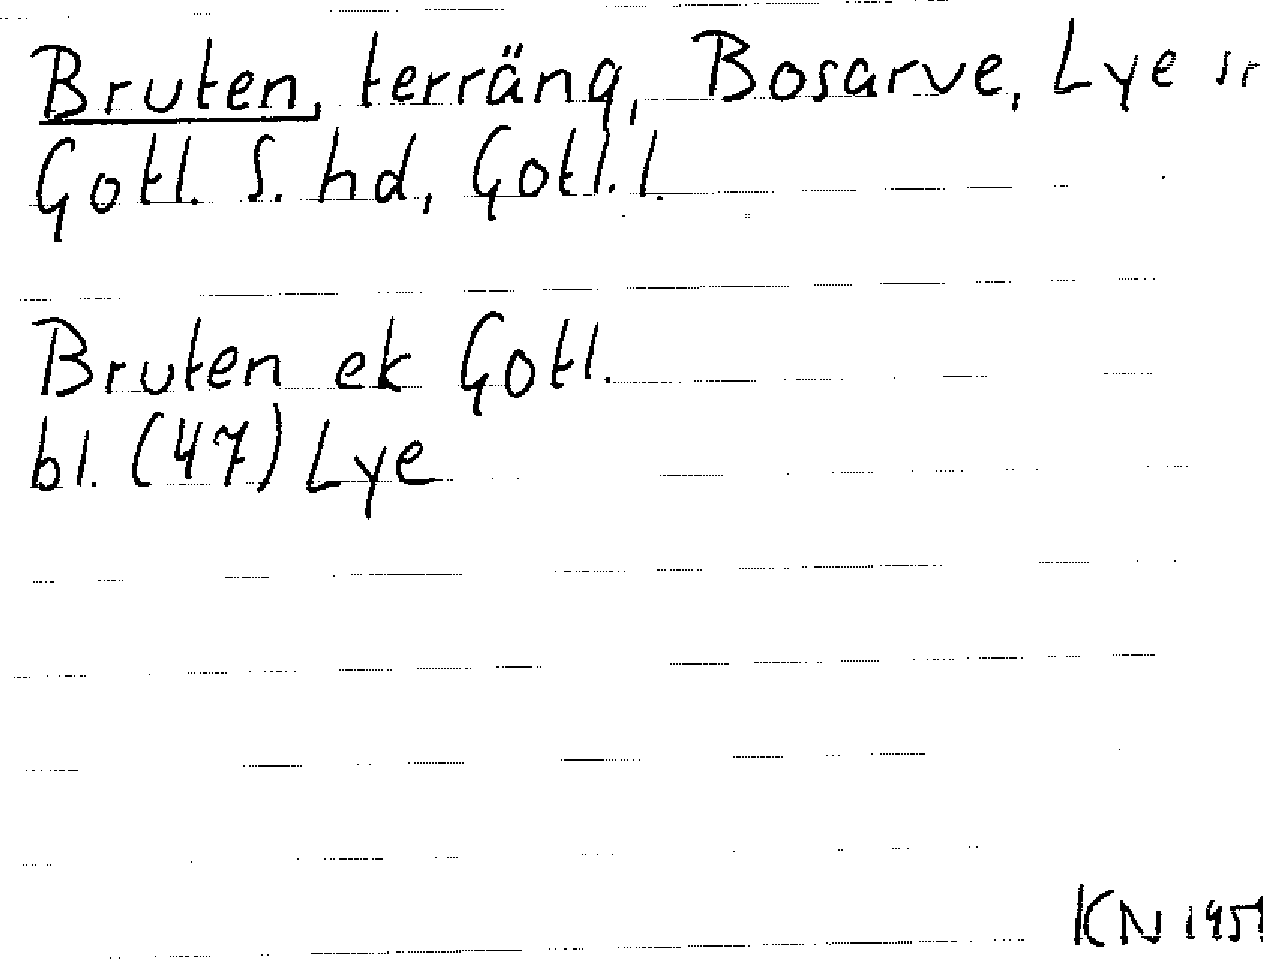 Bruten, terräng, Bosarve, Lye sn
Gotl. S. hd, Gotl. l.
Bruten ek Gotl.
bl. (47) Lye
KN 1951